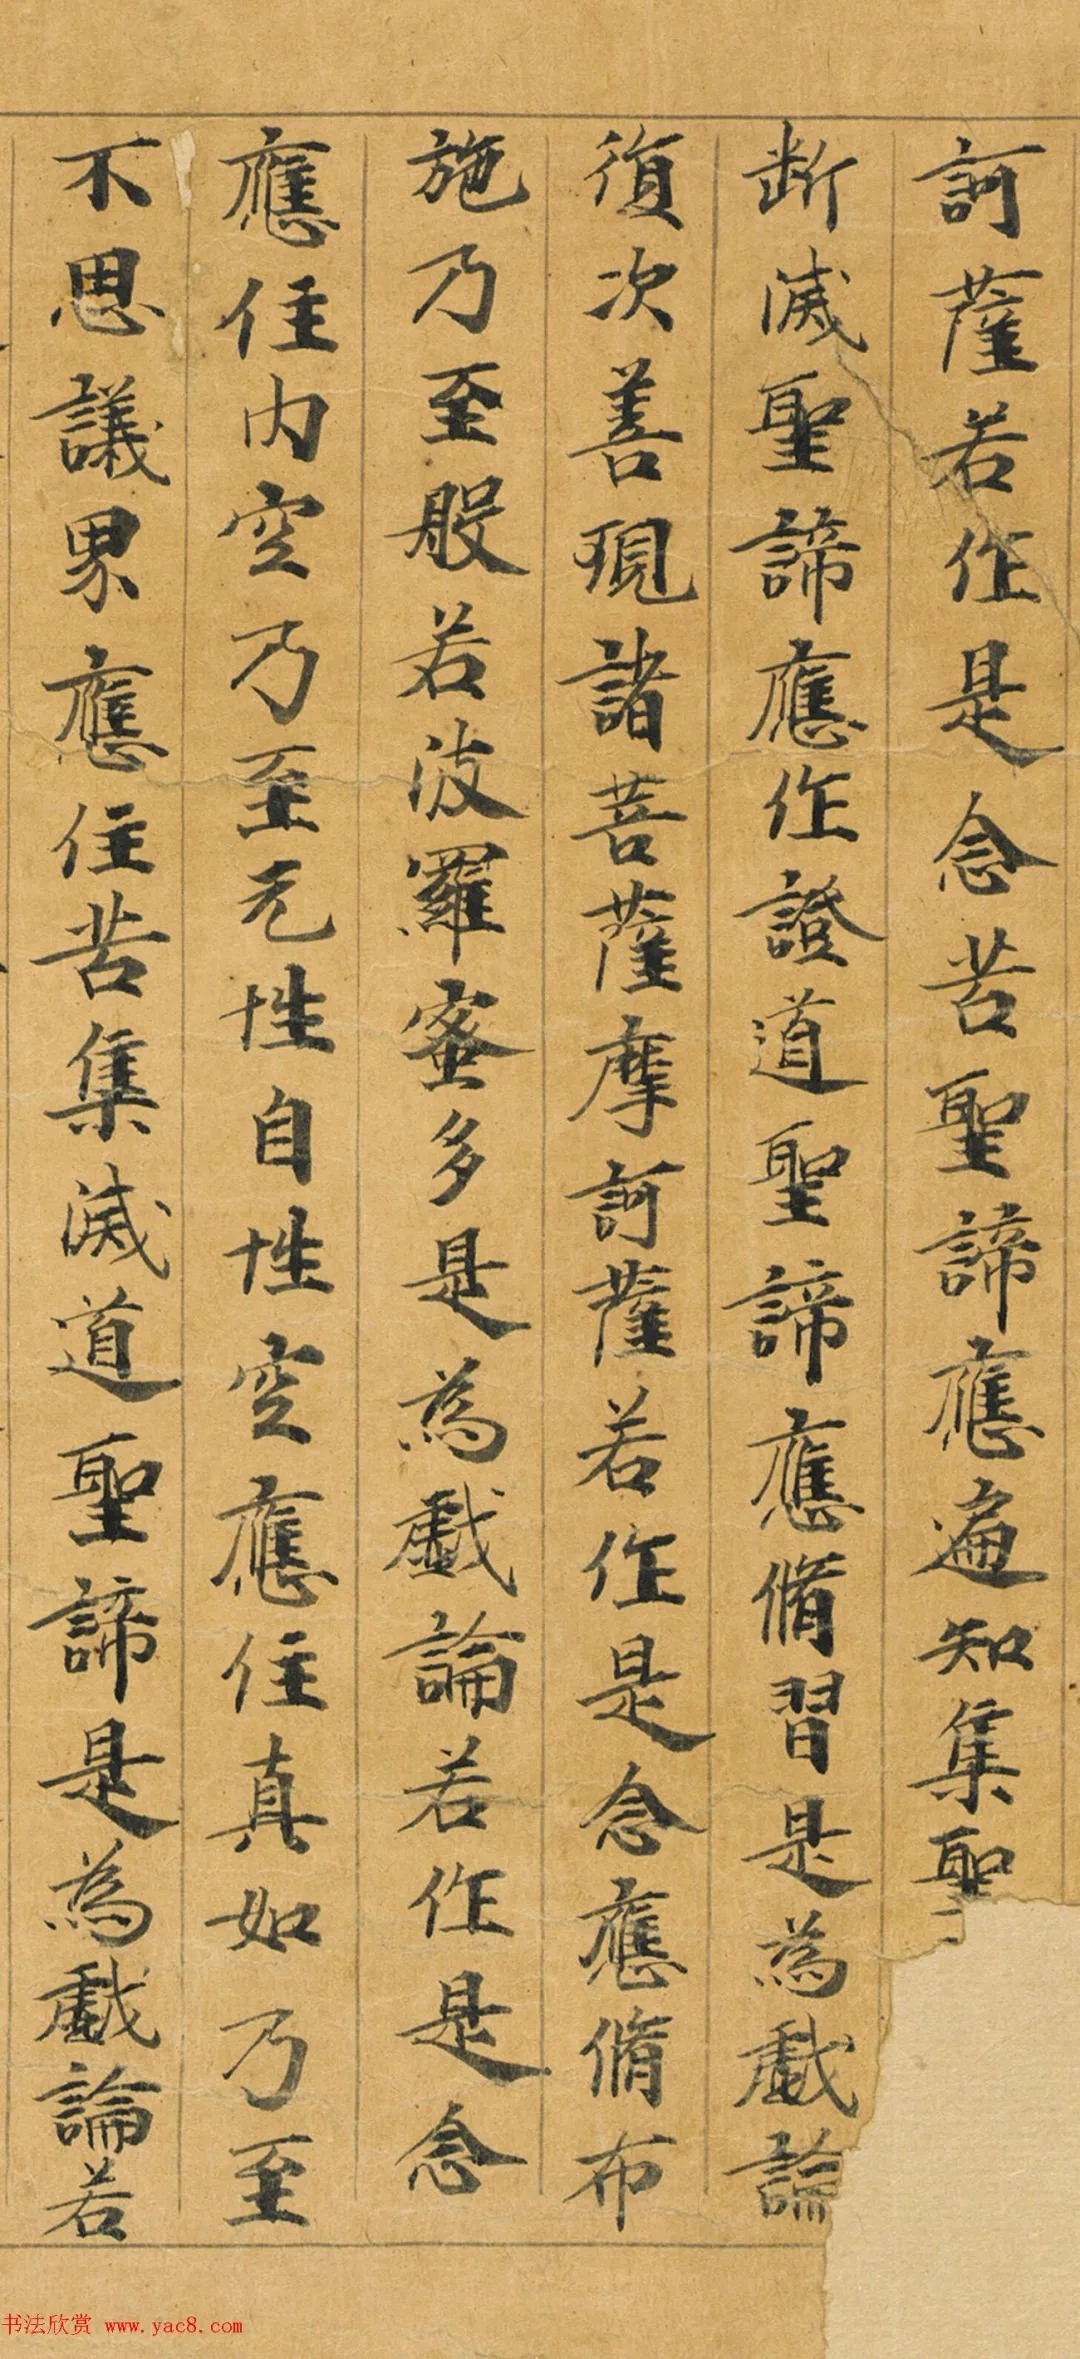 訶薩若作是念苦聖諦應遍知集聖
断滅聖諦應作證道聖諦應脩習是為戲論
復次善現諸菩薩摩訶薩若作是念應脩布
施乃至般若波羅蜜多是為戲論若作是念
應住内空乃至无性自性空應住真如乃至
不思議界應住苦集滅道聖諦是為戲論若
书法欣赏 www.yac8.com